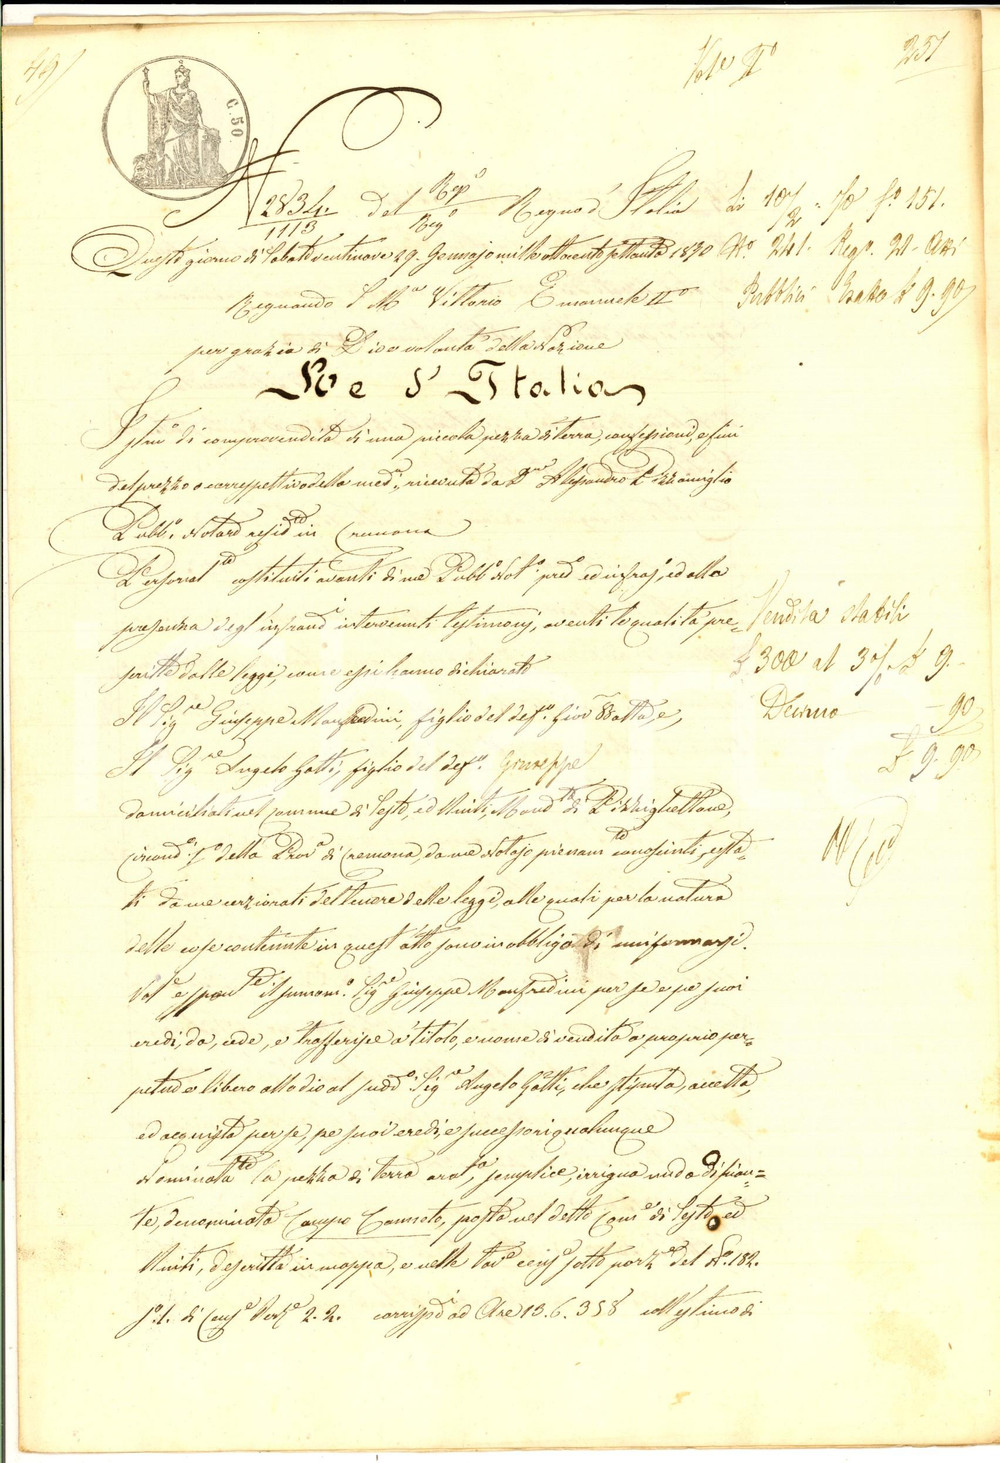 49)
257
C. 50
N 2834. / 1113 del Rep.o / Reg.o Regno d'Italia
Questo giorno di Sabato ventinove 29. Gennajo mille ottocento settanta 1870
Regnando S. M. Vittorio Emanuele II°
per grazia di Dio e volontà della Nazione
Re d'Italia
N. 241. Reg. 21. Atti
Pubblici Esatte £ 9. 90
Istro di compravendita di una piccola pezza di terra, confessione, e fini
del prezzo o correspettivo della med.a, ricevuta da D.r Alessandro
Pubb.o Notaro resid.te in Cremona
Personal.te costituiti avanti di me Pubb.o Not.o pred.o ed infras.o, ed alla
presenza degl'infrand.i intervenuti testimonj, aventi le qualità pre-
scritte dalle leggi, come essi hanno dichiarato
Il Sig.re Giuseppe Manfredini, figlio del def.o Giov. Batta, e,
Il Sig.re Angelo Gatti, figlio del def.o Giuseppe
Vendita stabili
£ 300 al 3 % £ 9.-
Decimo - 90
£ 9. 90
domiciliati nel comune di Sesto, ed Uniti, Mand.to di Pizzighettone,
circond.o I.o della Prov.a di Cremona, da me Notajo pienam.te conosciuti, e sta-
ti da me cerziorati del tenore delle leggi, alle quali per la natura
delle cose contenute in quest'atto sono in obbligo di uniformarsi.
Vol.e e spon.te il sunom.o Sig.re Giuseppe Manfredini per se e pe' suoi
eredi, dà, cede, e trasferisce a titolo, e nome di vendita a proprio per-
petuo e libero allodio al sudd.o Sig.re Angelo Gatti, che stipula, accetta,
ed acquista per se, pe' suoi eredi, e successori qualunque
Nominata.te la pezza di terra arat.a, semplice, irrigua nuda di pian-
te, denominata Campo Canneto, posta nel detto Com.e di Sesto ed
Uniti, descritta in mappa, e nelle Tav.e cens.e sotto porz.e del N.o 182.
s.o 1. di Cens.o Pert.e 2. 2. corrisp.i ad Are 13. 6. 358 coll'estimo di